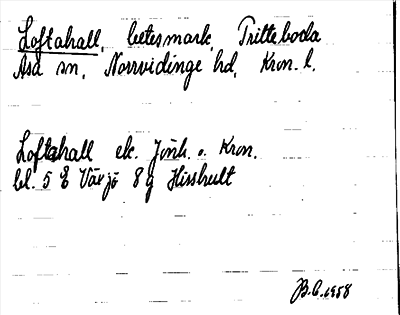 Loftahall, betesmark, Tritteboda
Asa sn, Norrvidinge hd, Kron. l.
Loftahall ek. Jönk. o. Kron.
bl. 5 E Växjö 8 g Hisshult
B.E. 1958